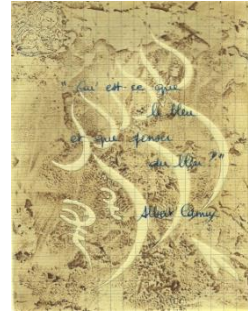 " Qui est ce que
le bleu
et que penser
du bleu ? "
Albert Camus